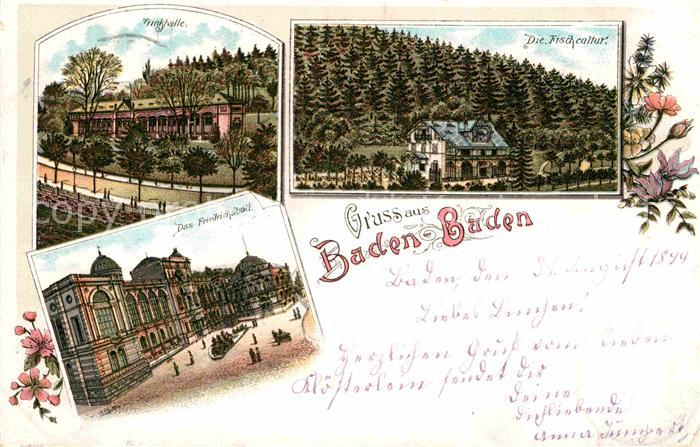 Trinkhalle.
Die Fischcultur.
Das Friedrichsbad.
Gruss aus
Baden-Baden
Baden, den 31. August 1899
Liebes Linchen!
Herzlichen Gruß vom lieben
Klösterlein sendet dir
Deine
dichliebende
Anna